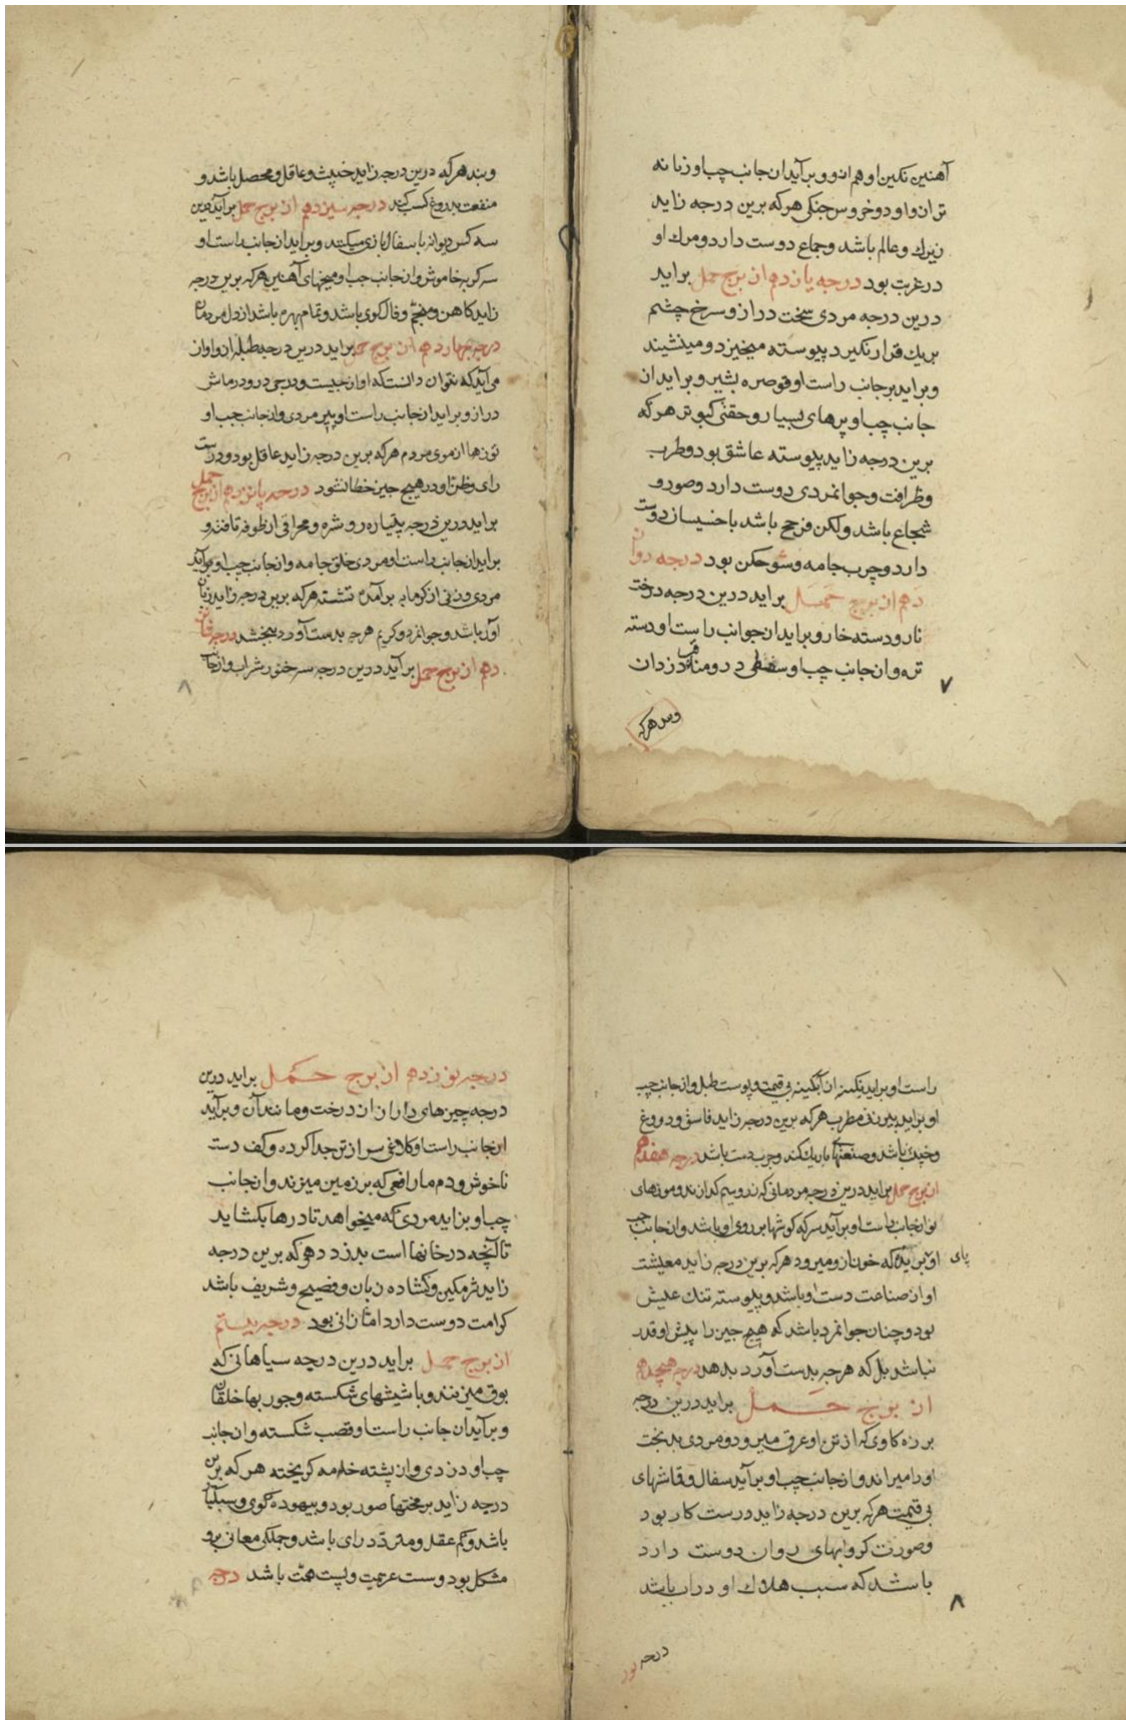 آهنین نکین او هم انو و برآید از جانب چپ او زنانه
تران و او دو خروس جنکی هرکه برین درجه زاید
زیرك و عالم باشد و جماع دوست دارد و مرك او
در غربت بود درجه یازدهم از برج حمل براید
درین درجه مردی سخت دراز و سرخ چشم
بریك قرار نکیرد پیوسته میخیزد و مینشیند
و براید بر جانب راست او قوصره بشیر و براید از
جانب چپ او پرهای بسیار و حقنی کبوتر هرکه
برین درجه زاید پیوسته عاشق بود و طرب
و ظرافت و جوانمردی دوست دارد و صور و
شجاع باشد ولکن فرحج باشد با خسیسان دوست
دارد و چرب جامه و شوخکن بود درجه دوان
دهم از برج حمل براید درین درجه درخت
نار و دسته خار و براید از جوانب راست او دسته
تره و از جانب چپ او سفطی درو متاع دزدان
۷
وبند هرکه
وبند هرکه درین درجه زاید خبیث و عاقل و محصل باشد و
منفعت بدروغ کسب کند درجه سیزدهم از برج حمل براید درین
سه کس دیوانه با سفال بازی میکنند و براید از جانب راست او
سه کربه خاموش و از جانب چپ او میخهای آهنین هرکه برین درجه
زاید کاهن و منجم و فال کوی باشد و تمام بهره باشد از دل مردمان
درجه چهاردهم از برج حمل براید درین درجه طبلها از و اوان
می آید که نتوان دانست که اواز چیست و درجی درو در ماش
دراز و براید از جانب راست او پیر مردی و از جانب چپ او
توزها از موی مردم هرکه برین درجه زاید عاقل بود و درست
رای و ظن او در هیچ چیز خطا نشود درجه پانزدهم از برج حمل
براید درین درجه پتیاره رو شره و محراقی از طوفه تافته و
براید از جانب راست او مردی خلق جامه و از جانب چپ او برآید
مردی و زنی از کرمابه برآمده نشسته هرکه برین درجه زاید زبان
آور باشد و جوانمرد و کریم هرچه بدست آورد ببخشد درجه شانز
دهم از برج حمل برآید درین درجه سر خنور شراب و از جانب
۸
راست او براید نکینه از آبکینه بی قیمت و پوست طبل و از جانب چپ
او براید پیرزنی مطرب هرکه برین درجه زاید فاسق و دروغ
و خبیث باشد و صنعتها باریك کند و چرب دست باشد درجه هفدهم
از برج حمل براید درین درجه مردمانی که زر و سیم کدازند و موزهای
نو از جانب راست او برآید سرکه کوشها بر روی او باشد و از جانب چپ
او برآید پای که خون ازو میرود هرکه برین درجه زاید معیشت
او از صناعت دست او باشد و پیوسته تنك عیش
بود و چنان جوانمرد باشد که هیچ چیز را پیش او قدر
نباشد بل که هرچه بدست آورد بدهد درجه هیجدهم
از برج حمل براید درین درجه
برزه کاوی که از تن او عرق میرود و مردی بدبخت
او را میراند و از جانب چپ او برآید سفال و قاشهای
بی قیمت هرکه برین درجه زاید درست کار بود
و صورت کر و ابهای روان دوست دارد
باشد که سبب هلاك او در آب باشد
۸
درجه نوز
درجه نوزدهم از برج حمل براید درین
درجه چیزهای داران از درخت و مانند آن و برآید
از جانب راست او کلاغی سر از تن جدا کرده و کف دست
ناخوش و دم مار افعی که بر زمین میزند و از جانب
چپ او براید مردی که میخواهد تا درها بکشاید
تا آنچه درخانها است بدزدد هرکه برین درجه
زاید شرمکین و کشاده زبان و فصیح و شریف باشد
کرامت دوست دارد اما زانی بود درجه بیستم
از برج حمل براید درین درجه سیاهانی که
بوق میزنند و با شیشهای شکسته و جوربها خلقان
و برآید از جانب راست او قصب شکسته و از جانب
چپ او دزدی و از پشته خادمه کریخته هرکه برین
درجه زاید بر محنتها صبور بود و بیهوده کوی و سبکبار
باشد و کم عقل و متردد رای باشد و جملکی معانی برو
مشکل بود و سست عزیمت و پست همت باشد درجه